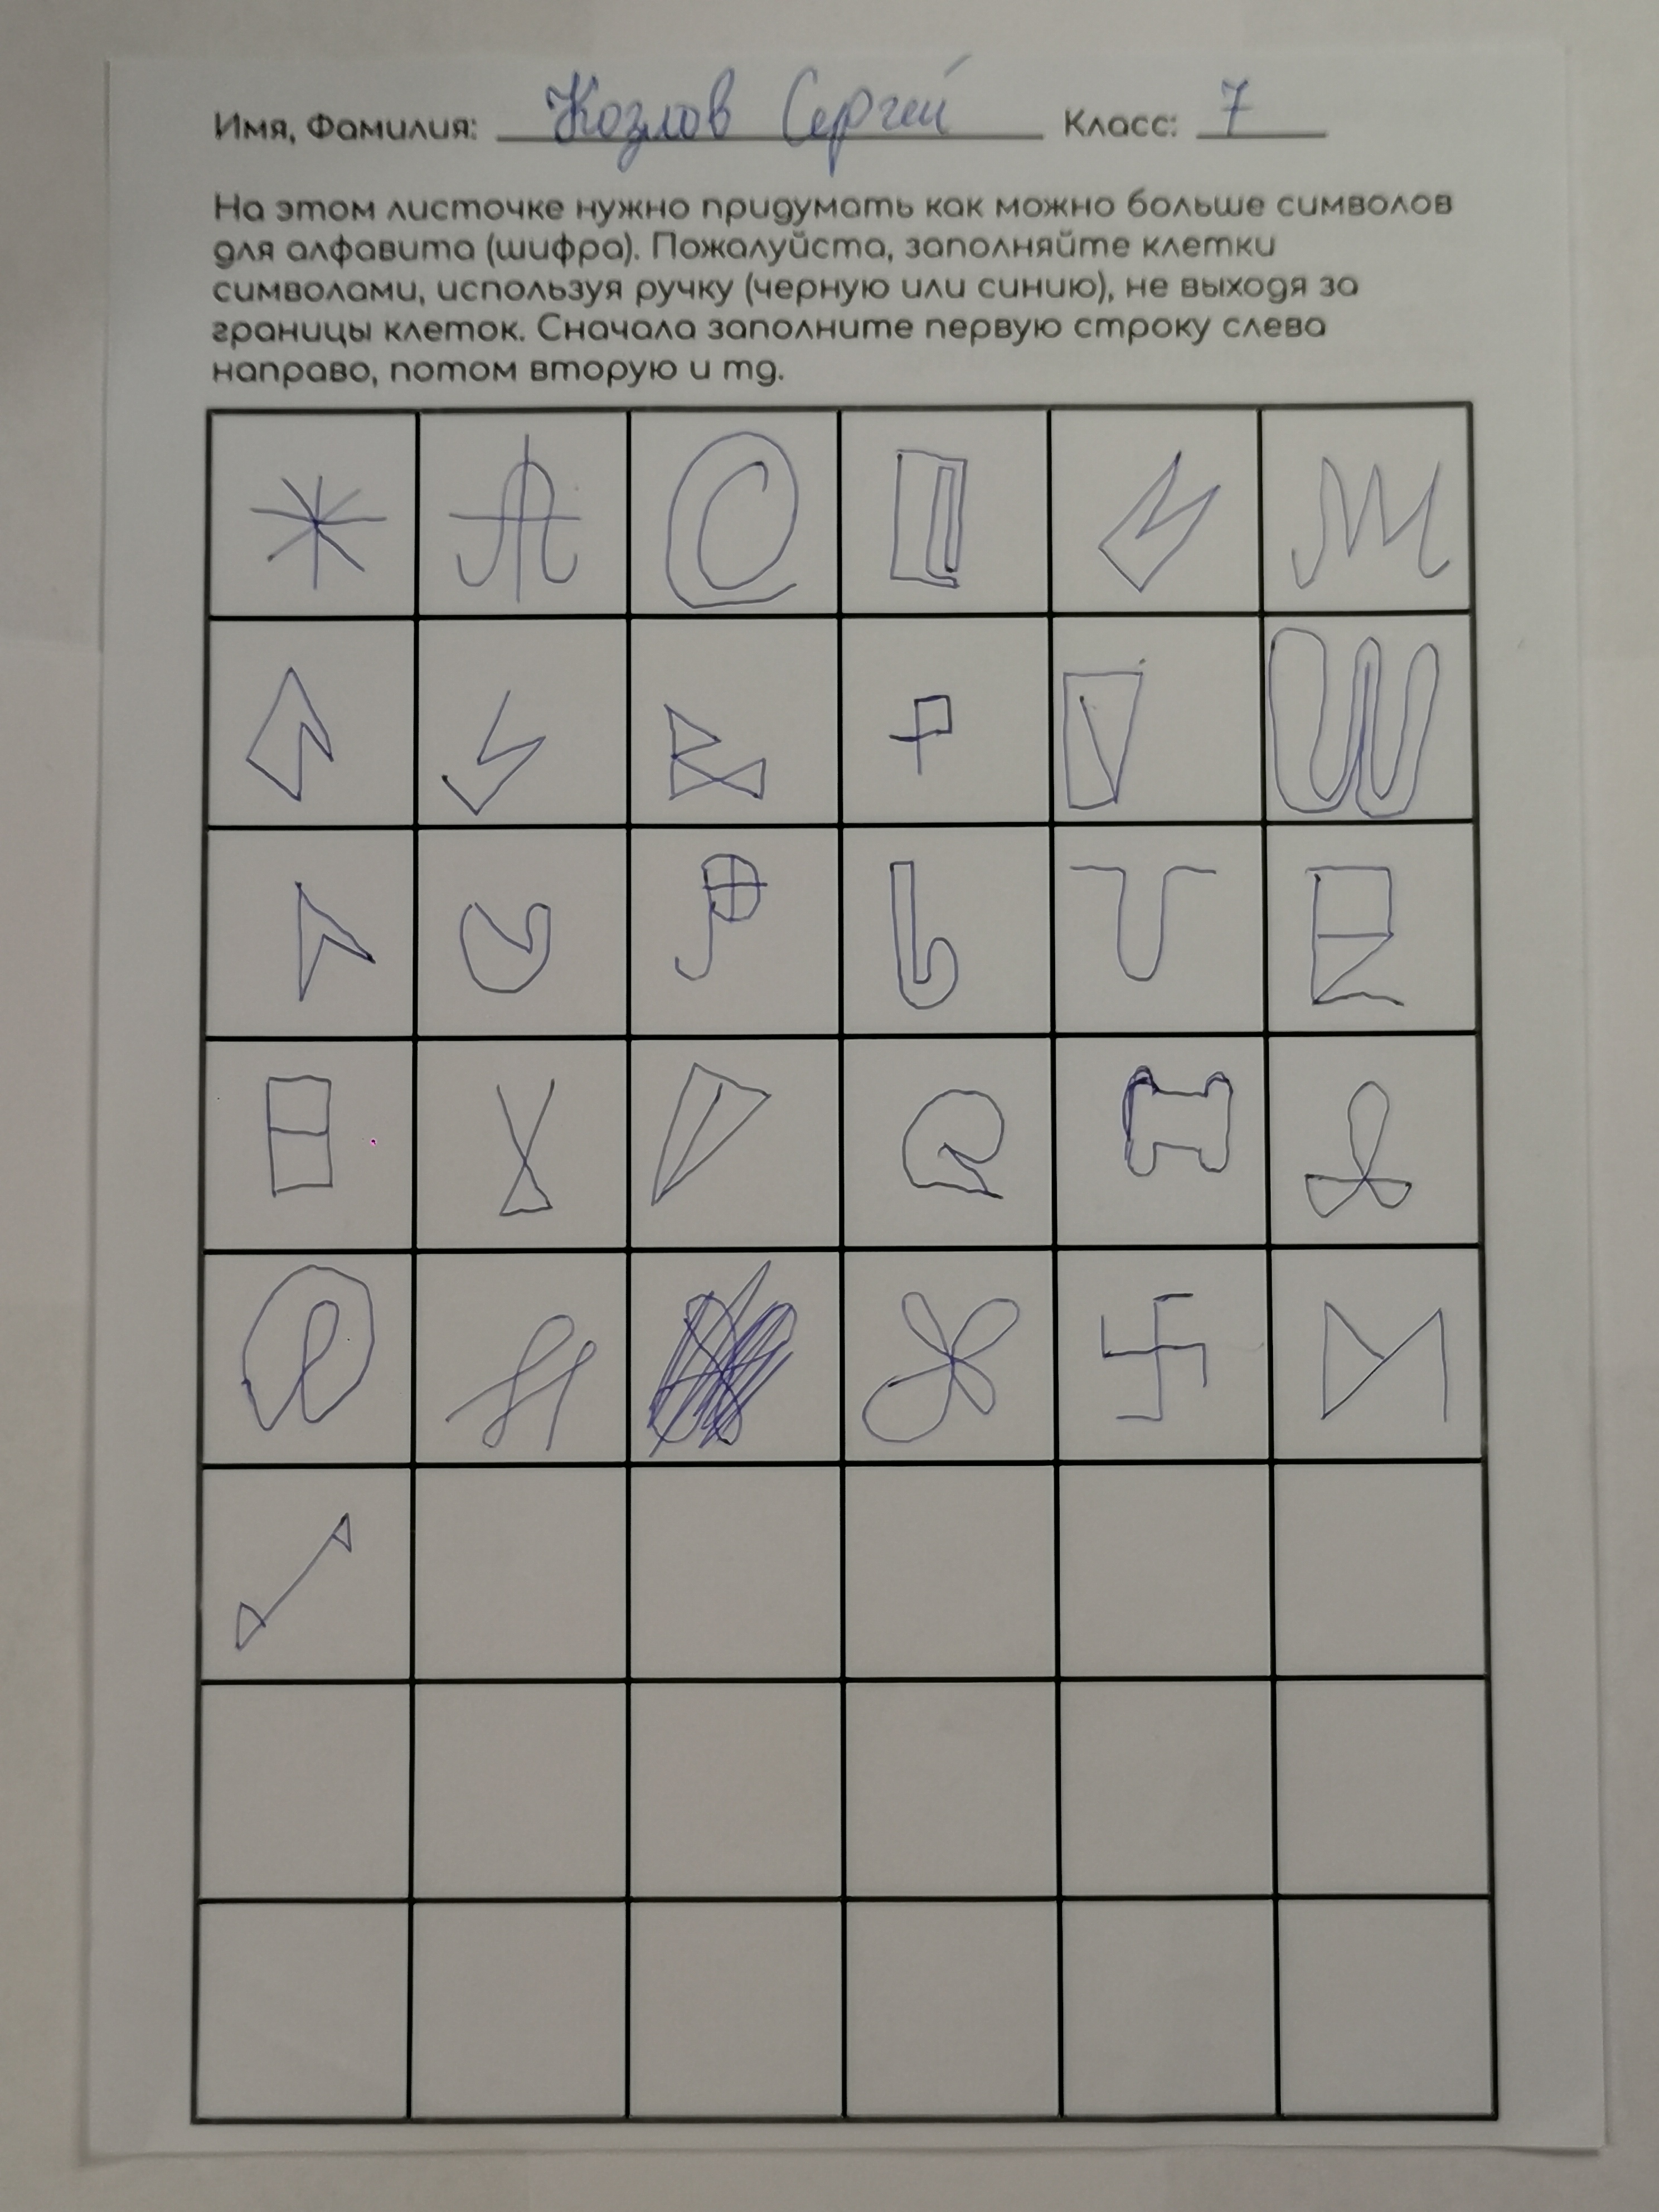 Имя, Фамилия: Козлов Сергей Класс: 7
На этом листочке нужно придумать как можно больше символов
для алфавита (шифра). Пожалуйста, заполняйте клетки
символами, используя ручку (черную или синию), не выходя за
границы клеток. Сначала заполните первую строку слева
направо, потом вторую и тд.